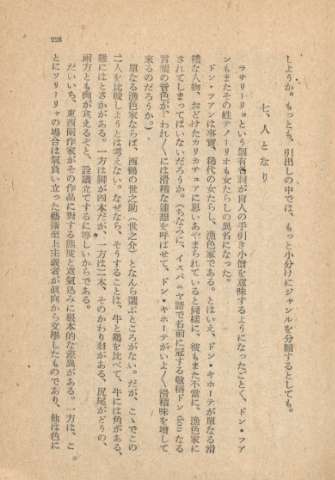 228
しようか。もっとも、引出しの中では、もっと小分けにジャンルを分類するとしても。
七、人となり
ラサリーリョという固有名詞が盲人の手引き小僧を意味するようになったごとく、ドン・フア
ンもまたその姓テノーリオも女たらしの異名になった。
ドン・フアンは事實、稀代の女たらし、漁色家である。とはいえ、ドン・キホーテが單なる滑
稽な人物、おどけたカリカチュアに思いあやまられていると同樣に、彼もまた不當に、漁色家に
されてしまってはいないだろうか。(ちなみに、イスパニヤ語で名前に冠する敬稱ドン don なる
言葉の音色が、われわれには滑稽な連想を呼ばせて、ドン・キホーテがいよいよ滑稽味を増して
來るのだろうか?)
單なる漁色家ならば、西鶴の世之助(世之介)となんら選ぶところがない。だが、こゝでこの
二人を比較しようとは思えない。なぜなら、そうすることは、牛と鷄を比べて、牛には角がある、
鷄にはとさかがある。一方は脚が四本だが、一方は二本、そのかわり羽がある、尻尾がどうの、
兩方とも肉が食えるぞと、設議立てするに等しいからである。
だいいち、東西兩作家がその作品に對する態度と意氣込みに根本的な差異がある。一方は、こ
とにソリーリャの場合は氣負い立った藝術至上主義者が眞向から文學したものであり、他は色に